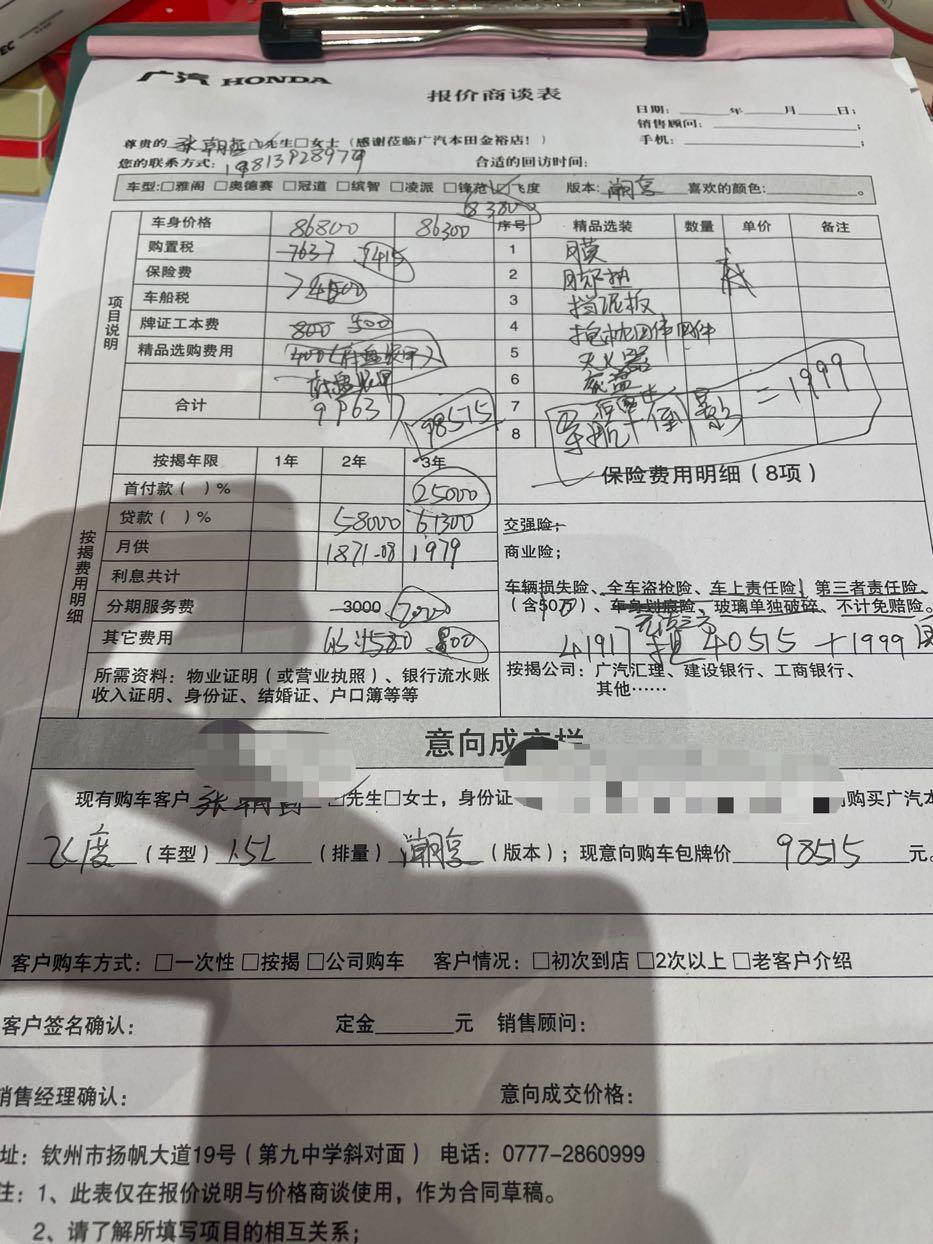 EC
广汽 HONDA
报价商谈表
日期：____年____月____日；
销售顾问：____；
手机：____；
尊贵的 张朝哲 □先生□女士（感谢莅临广汽本田金裕店！）
您的联系方式： 合适的回访时间：
车型：□雅阁 □奥德赛 □冠道 □缤智 □凌派 □锋范 □飞度 版本：潮享 喜欢的颜色：____。
83800
项目说明
车身价格 86800 86300 序号 精品选装 数量 单价 备注
购置税 7637 7415 1 膜
保险费 4800 2
车船税 3 挡泥板
牌证工本费 800 500 4
精品选购费用 400 5 灭火器
6 底盘
合计 98575 7
8 导航 倒 =1999
按揭费用明细
按揭年限 1年 2年 3年 保险费用明细（8项）
首付款（ ）% 25000
贷款（ ）% 58000 61300 交强险；
月供 1871.08 1979 商业险；
利息共计
车辆损失险、全车盗抢险、车上责任险、第三者责任险、
分期服务费 3000 2000 （含50万）、车身划痕险、玻璃单独破碎、不计免赔险。
其它费用 800 41917 40515 +1999
所需资料：物业证明（或营业执照）、银行流水账 按揭公司：广汽汇理、建设银行、工商银行、
收入证明、身份证、结婚证、户口簿等等 其他……
意向成交栏
现有购车客户 张朝 □先生□女士，身份证 购买广汽本
飞度（车型）1.5L（排量）潮享（版本）；现意向购车包牌价 98515 元。
客户购车方式：□一次性 □按揭 □公司购车 客户情况：□初次到店 □2次以上 □老客户介绍
客户签名确认： 定金____元 销售顾问：
销售经理确认： 意向成交价格：
址：钦州市扬帆大道19号（第九中学斜对面） 电话：0777-2860999
注：1、此表仅在报价说明与价格商谈使用，作为合同草稿。
2、请了解所填写项目的相互关系；